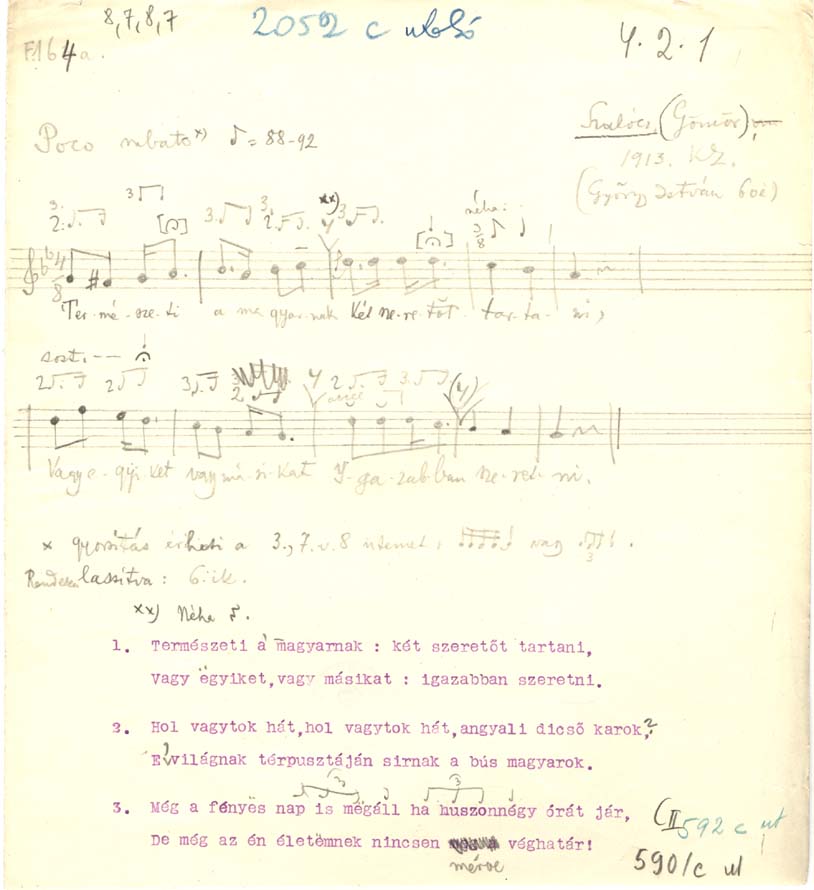 8,7,8,7
2052 c utolsó
4.2.1
F.164a.
Poco rubato x) ♪ = 88-92
Szalóc, (Gömör)
1913. KZ.
(Győry István 60é)
néha:
Ter-mé-sze-ti a ma-gyar-nak két sze-re-tőt tar-ta-ni,
sost.
Vagy e-gyi-ket vagy má-si-kat I-ga-zab-ban sze-ret-ni.
x gyorsítás érheti a 3., 7. v. 8 ütemet, vagy
Rendesen lassítva: 6.ik.
xx) Néha
1. Természeti a magyarnak : két szeretőt tartani,
Vagy ëgyiket,vagy másikat : igazabban szeretni.
2. Hol vagytok hát,hol vagytok hát,angyali dicső karok,?
E világnak térpusztáján sirnak a bús magyarok.
3. Még a fényës nap is mëgáll ha huszonnégy órát jár,
De még az én életëmnek nincsen véghatár!
mérve
(II 592 c ut
590/c ul